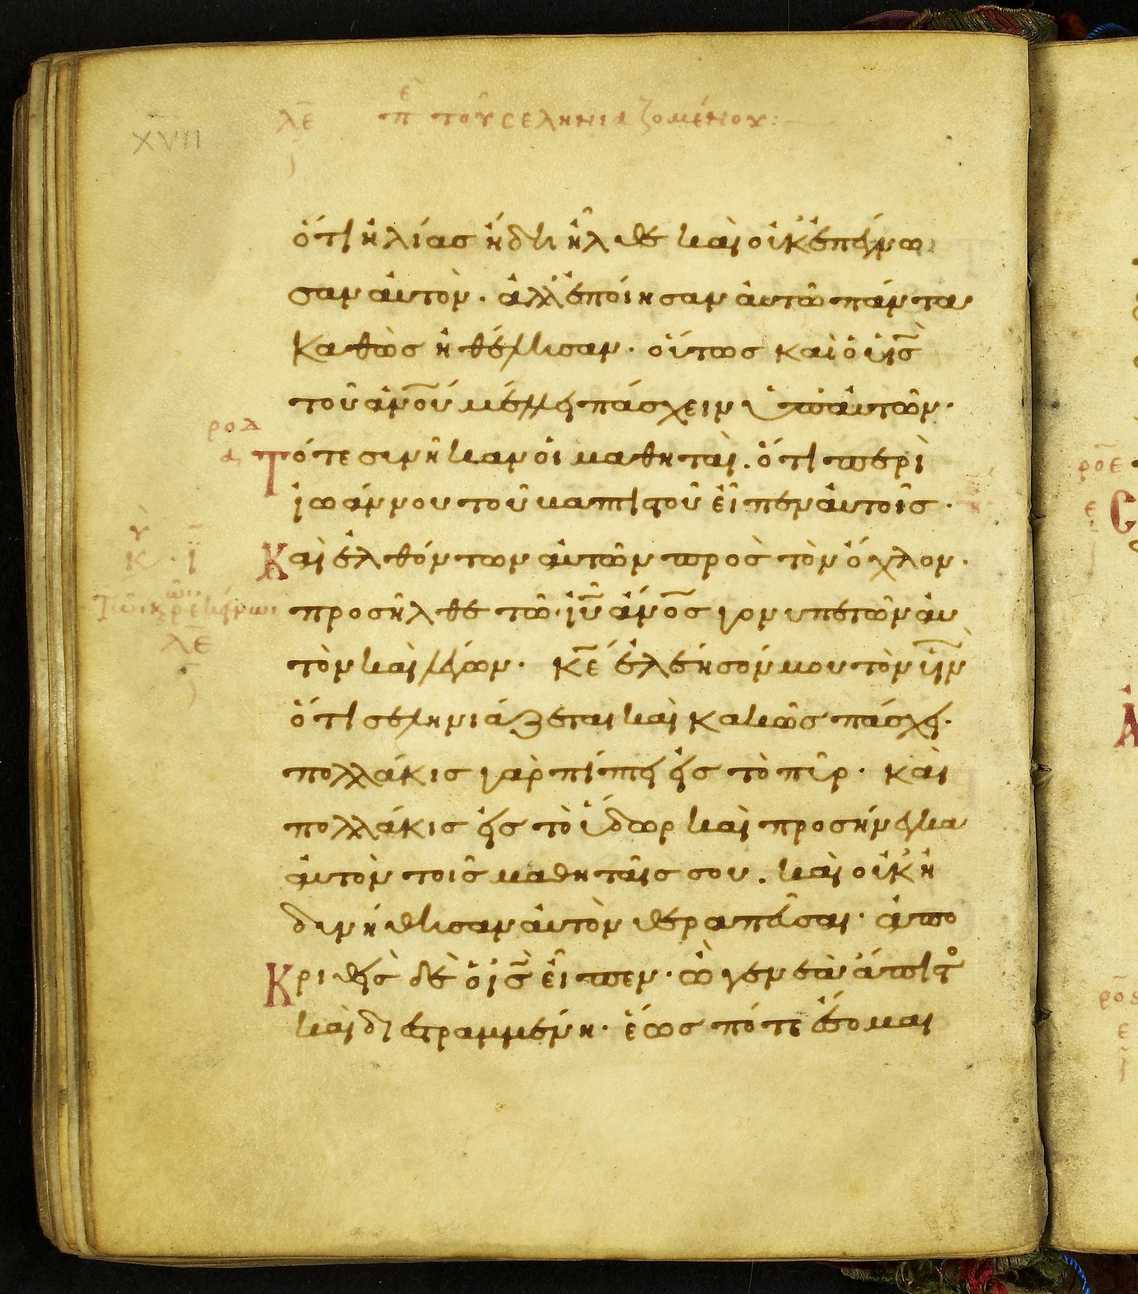 XVII λε̄ πε̄ τοῦ σεληνιαζομένου:
ὅτι ἡλίας ἤδη ἦλθε καὶ οὐκ ἐπέγνω
σαν αὐτὸν· ἀλλ' ἐποίησαν αὐτῶ πάντα
καθὼς ἠθέλησαν· οὕτως καὶ ὁ ὑι̅ς̅
τοῦ ἀν̅ο̅υ̅ μέλλει πάσχειν ὑπ' αὐτῶν·
ροδ
α Τότε συνῆκαν οἱ μαθηταὶ. ὅτι περὶ
ἰωάννου τοῦ βαπτιστοῦ εἶπεν αὐτοῖς·
Καὶ ἐλθόντων αὐτῶν πρὸς τὸν ὄχλον·
προσῆλθε τῶ ι̅υ̅ ἄν̅ο̅ς̅ γονυπετῶν αὐ
λε̄
τὸν καὶ λέγων· κ̅ε̅ ἐλέησόν μου τὸν υἱ̅ν̅
ὅτι σεληνιάζεται καὶ κακῶς πάσχει·
πολλάκις γὰρ πίπτει εἰς τὸ πῦρ· καὶ
πολλάκις εἰς τὸ ὕδωρ καὶ προσήνεγκα
αὐτὸν τοῖς μαθηταῖς σου. καὶ οὐκ ἠ
δυνήθησαν αὐτὸν θεραπεῦσαι· ἀπο
Κριθεὶς δὲ ὁ ι̅ς̅ εἶπεν· ὦ γενεὰ ἄπιστο
καὶ διεστραμμένη· ἕως πότε ἔσομαι
ροε
ε
C
Α
ε